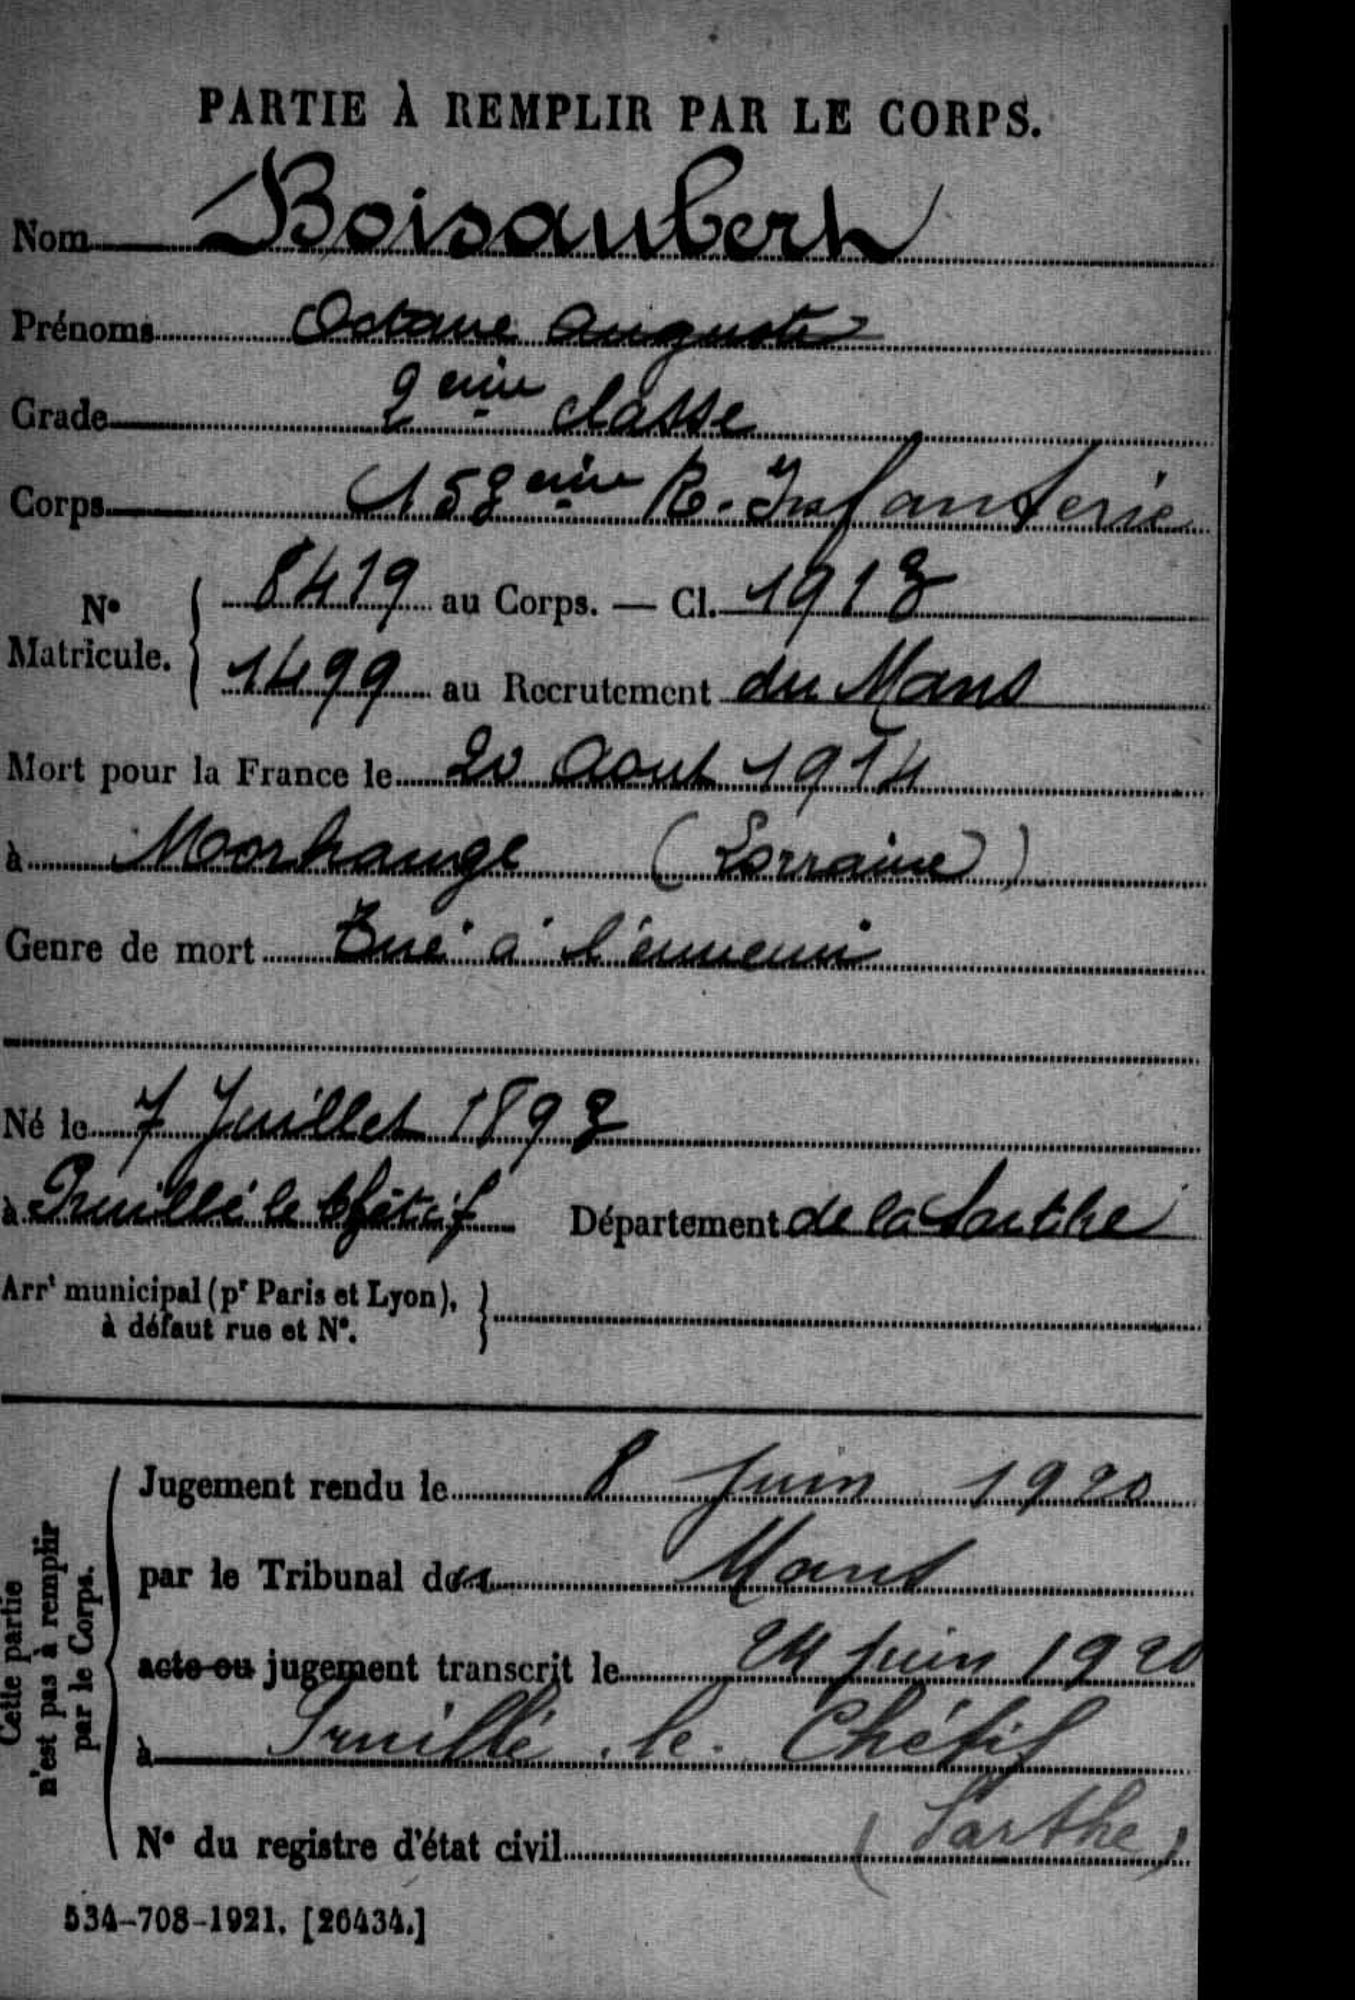 PARTIE À REMPLIR PAR LE CORPS.
Nom Boisaubert
Prénoms Octave Auguste
Grade 2eme classe
Corps 153eme R. Infanterie
N° Matricule. { 8419 au Corps. — Cl. 1913
1499 au Recrutement du Mans
Mort pour la France le 20 Aout 1914
à Morhange (Lorraine)
Genre de mort Tué à l'ennemi
Né le 7 Juillet 1893
à Pruillé le Chétif Département de la Sarthe
Arrt municipal (pr Paris et Lyon), }
à défaut rue et N°.
Cette partie
n'est pas à remplir
par le Corps.
Jugement rendu le 8 Juin 1920
par le Tribunal du Mans
acte ou jugement transcrit le 24 juin 1920
à Pruillé le Chétif
N° du registre d'état civil (Sarthe)
534-708-1921. [26434.]